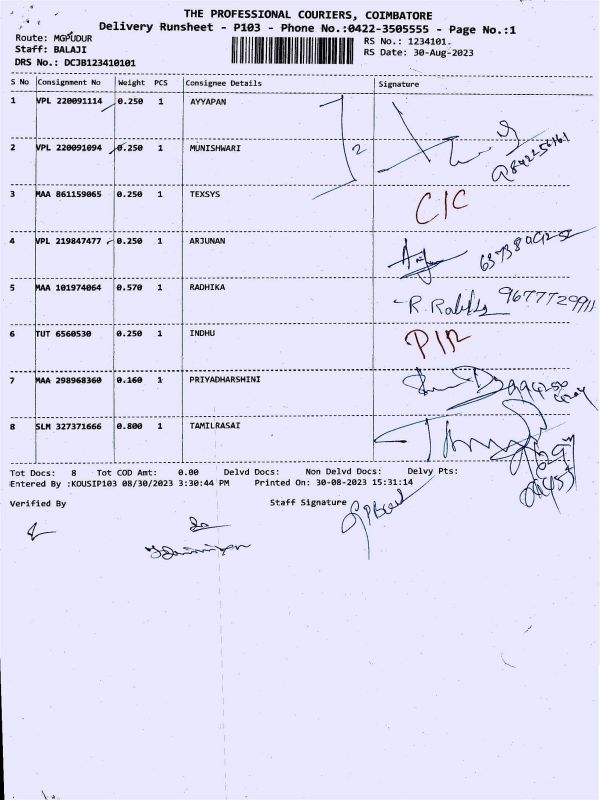 THE PROFESSIONAL COURIERS, COIMBATORE
Delivery Runsheet - P103 - Phone No.:0422-3505555 - Page No.:1
Route: MGPUDUR
RS No.: 1234101.
Staff: BALAJI
RS Date: 30-Aug-2023
DRS No.: DCJB123410101
S No Consignment No Weight PCS Consignee Details Signature
1 VPL 220091114 0.250 1 AYYAPAN
2 VPL 220091094 0.250 1 MUNISHWARI 2
3 MAA 861159065 0.250 1 TEXSYS C/C
4 VPL 219847477 0.250 1 ARJUNAN
5 MAA 101974064 0.570 1 RADHIKA
6 TUT 6560530 0.250 1 INDHU
7 MAA 298968360 0.160 1 PRIYADHARSHINI
8 SLM 327371666 0.800 1 TAMILRASAI
Tot Docs: 8 Tot COD Amt: 0.00 Delvd Docs: Non Delvd Docs: Delvy Pts:
Entered By :KOUSIP103 08/30/2023 3:30:44 PM Printed On: 30-08-2023 15:31:14
Verified By Staff Signature